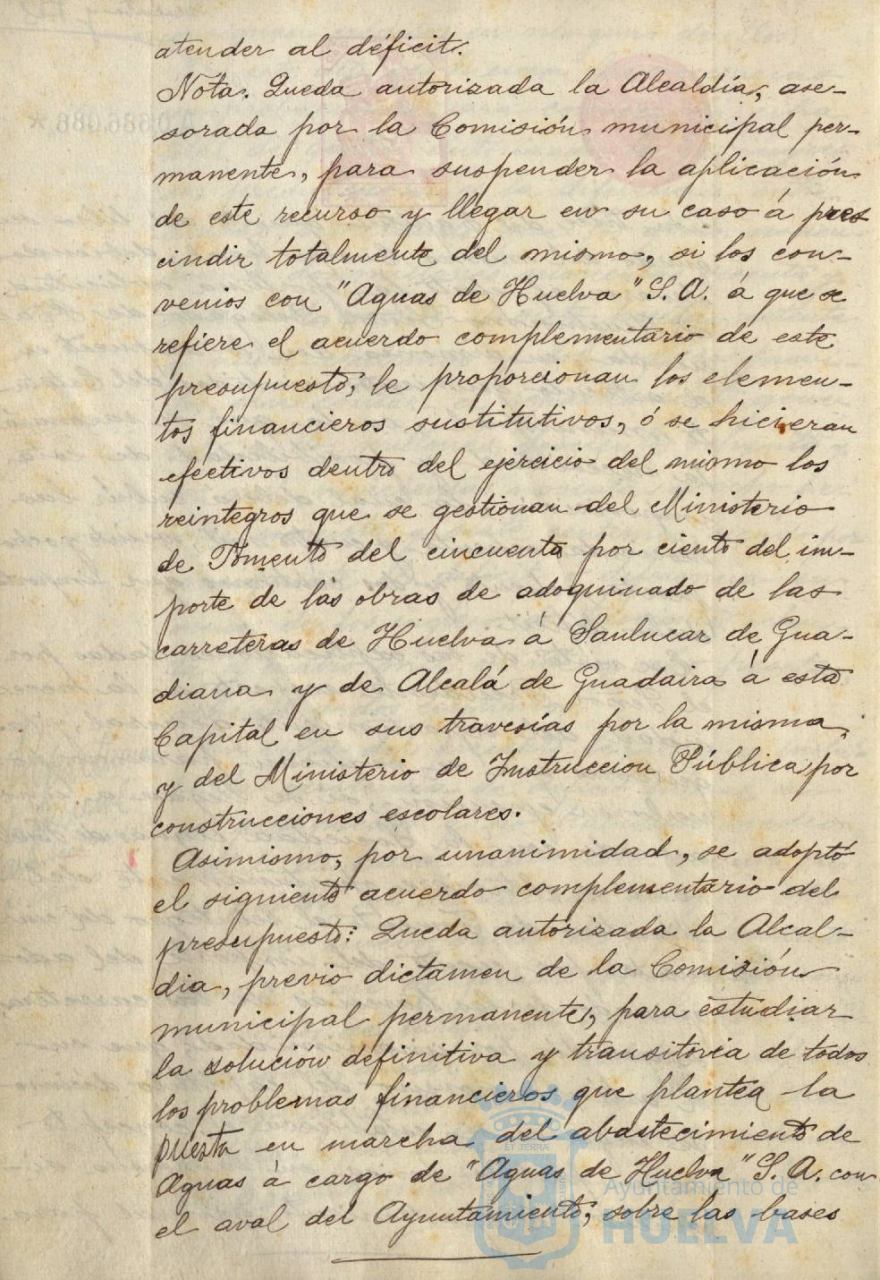 atender al déficit.
Nota. Queda autorizada la Alcaldía, ase-
sorada por la Comisión municipal per-
manente, para suspender la aplicación
de este recurso y llegar en su caso á pres
cindir totalmente del mismo, si los con-
venios con "Aguas de Huelva" S. A. á que se
refiere el acuerdo complementario de este
presupuesto; le proporcionan los elemen-
tos financieros sustitutivos, ó se hicieran
efectivos dentro del ejercicio del mismo los
reintegros que se gestionan del Ministerio
de Fomento del cincuenta por ciento del im-
porte de las obras de adoquinado de las
carreteras de Huelva á Sanlucar de Gua-
diana y de Alcalá de Guadaira á esta
Capital en sus travesías por la misma,
y del Ministerio de Instruccion Pública por
construcciones escolares.
Asimismo, por unanimidad, se adoptó
el siguiente acuerdo complementario del
presupuesto: Queda autorizada la Alcal-
dia, previo dictamen de la Comisión
municipal permanente, para estudiar
la solución definitiva y transitoria de todos
los problemas financieros que plantea la
puesta en marcha del abastecimiento de
Aguas á cargo de "Aguas de Huelva" S. A. con
el aval del Ayuntamiento; sobre las bases
Ayuntamiento de
HUELVA